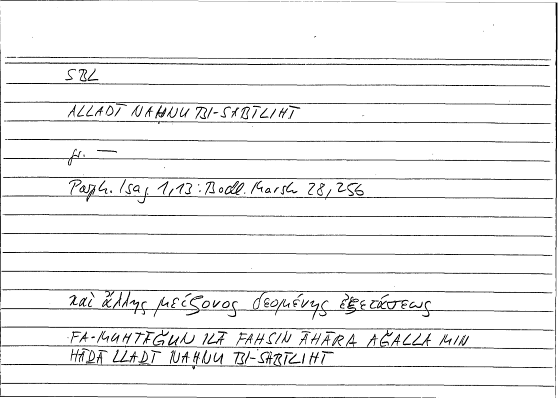 SBL
ALLADĪ NAḤNU BI-SABĪLIHĪ
gr. —
Porph. Isag. 1,13: Bodl. Marsh 28,256
καὶ ἄλλης μείζονος δεομένης ἐξετάσεως
FA-MUḤTĀǦUN ILĀ FAḤṢIN ĀḪARA AǦALLA MIN
HĀḎĀ LLAḎĪ NAḤNU BI-SABĪLIHĪ